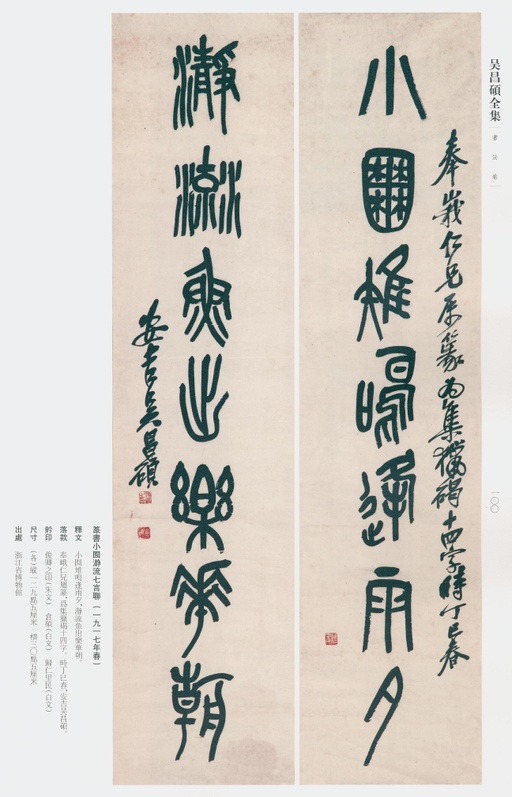 吴昌碩全集
書法卷
一〇〇
奉峩仁兄属篆為集獵碣十四字時丁巳春
小囿雉鳴逢雨夕
瀞流魚出樂華朝
安吉吴昌碩
篆書小囿瀞流七言聯(一九一七年春)
釋文 小囿雉鳴逢雨夕,瀞流魚出樂華朝。
落款 奉峨仁兄属篆,爲集獵碣十四字。時丁巳春,安吉吴昌碩。
鈐印 俊卿之印(朱文) 倉碩(白文) 歸仁里民(白文)
尺寸 (各)縱一二九點五厘米 橫三〇點五厘米
出處 浙江省博物館